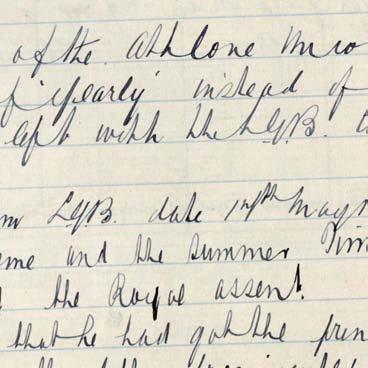 of the Athlone Mio
f 'yearly' instead of
left with the L.G.B.
L.G.B. date 14th May
me and the Summer Tim
the Royal assent.
that he had got the prin